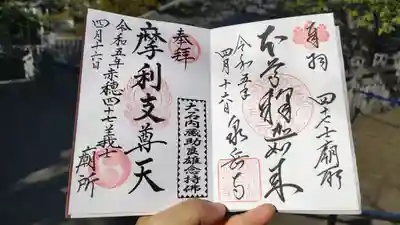 奉拝
摩利支尊天
大石内蔵助良雄念持佛
令和五年赤穂四十七義士
四月十六日
廟所
奉拝
四十七士廟所
本尊釈迦如来
令和五年
四月十六日
泉岳寺